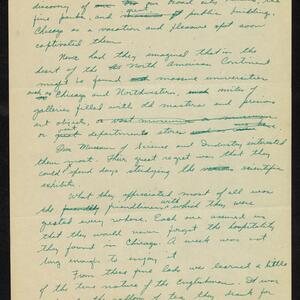 discovery of our great broad city
fine parks, and public buildings,
Chicago as a vacation and pleasure spot soon
captivated them.
Never had they imagined that in the
heart of the North American Continent
might be found massive universities
such as Chicago and Northwestern, miles of
galleries filled with old masters and precious
art objects,
or great department stores
Our Museum of Science and Industry interested
them most. Their great regret was that they
could spend days studying the scientific
exhibits.
What they appreciated most of all was
the friendliness with which they were
greeted every where. Each one assured me
that they would never forget the hospitality
they found in Chicago. A week was not
long enough to enjoy it
From these fine lads we learned a little
of the true nature of the Englishman. It was
of tea, they drank for